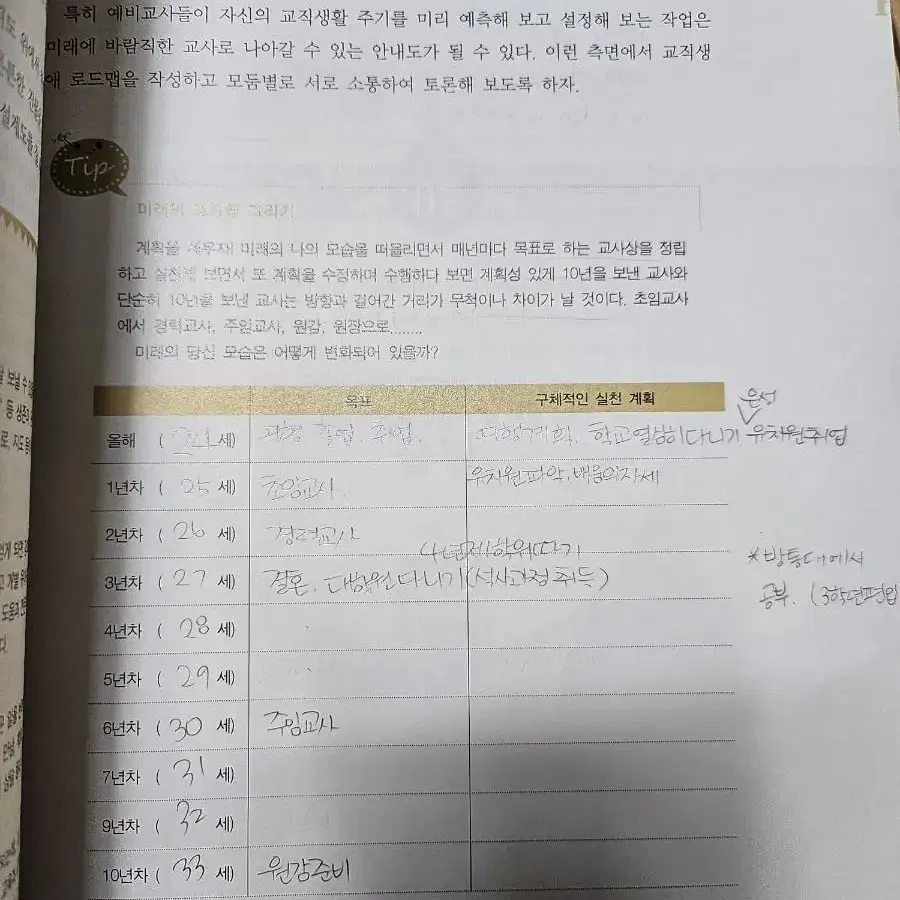 특히 예비교사들이 자신의 교직생활 주기를 미리 예측해 보고 설정해 보는 작업은
미래에 바람직한 교사로 나아갈 수 있는 안내도가 될 수 있다. 이런 측면에서 교직생
애 로드맵을 작성하고 모둠별로 서로 소통하여 토론해 보도록 하자.
Tip
미래의 그리기
계획을 세우자! 미래의 나의 모습을 떠올리면서 매년마다 목표로 하는 교사상을 정립
하고 실천해 보면서 또 계획을 수정하며 수행하다 보면 계획성 있게 10년을 보낸 교사와
단순히 10년을 보낸 교사는 방향과 걸어간 거리가 무척이나 차이가 날 것이다. 초임교사
에서 경력교사, 주임교사, 원감, 원장으로........
미래의 당신 모습은 어떻게 변화되어 있을까?
목표 구체적인 실천 계획
올해 ( 24 세) 졸업. 취업. 여행계획, 학교열심히다니기 유치원취업
1년차 ( 25 세) 초임교사. 유치원파악, 배움의자세
2년차 ( 26 세) 경력교사
4년제학위따기
3년차 ( 27 세) 결혼, 대학원다니기(석사과정취득)
*방통대에서
공부. (3학년편입
4년차 ( 28 세)
5년차 ( 29 세)
6년차 ( 30 세) 주임교사
7년차 ( 31 세)
9년차 ( 32 세)
10년차 ( 33 세) 원감준비